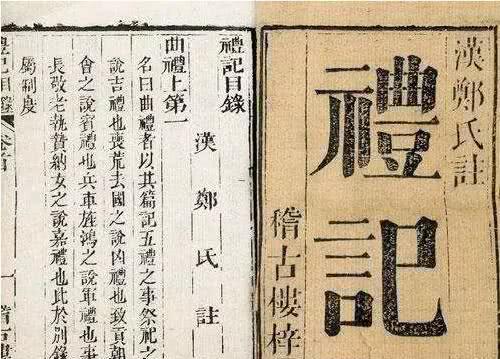 漢鄭氏註
禮記
稽古樓梓
禮記目錄
漢鄭氏註
曲禮上第一
名曰曲禮者以其篇記五禮之事祭祀之
說吉禮也喪荒去國之說凶禮也致貢朝
會之說賓禮也兵車旌鴻之說軍禮也事
長敬老執贄納女之說嘉禮也此於別錄
屬制度
禮記目錄 卷首 一